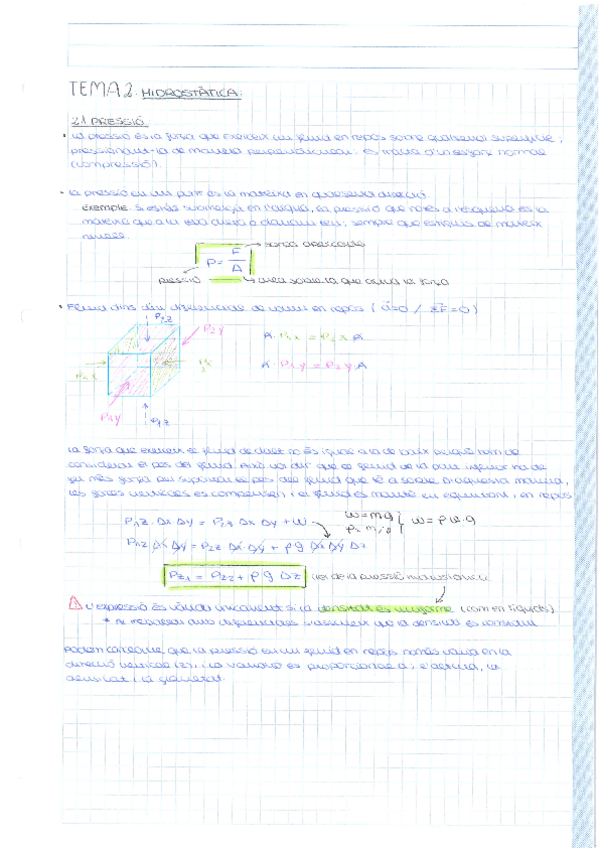 TEMA 2. HIDROSTÀTICA:
2.1 PRESSIÓ
• La pressió és la força que exerceix un fluid en repòs sobre qualsevol superfície,
pressionant-la de manera perpendicular. Es tracta d'un esforç normal
(compressió).
• La pressió en un punt és la mateixa en qualsevol direcció.
exemple: si estàs submergit en l'aigua, la pressió que notes a l'esquerra és la
mateixa que a la teva dreta o davant teu, sempre que estiguis al mateix
nivell.
P = F / A
força
pressió
àrea sobre la que actua la força
• Fluid dins d'un diferencial de volum en repòs (a⃗=0 / ΣF=0)
P₁z
P₂y
A · P₁x = P₂x · A
P₁x
P₂x
A · P₁y = P₂y · A
P₁y
P₂z
La força que exerceix el fluid de dalt no és igual a la de baix perquè hem de
considerar el pes del fluid. Això vol dir que el fluid de la part inferior ha de
fer més força per suportar el pes del fluid que té a sobre. D'aquesta manera,
les forces verticals es compensen i el fluid es manté en equilibri, en repòs
P₁z · Δx Δy = P₂z Δx Δy + W
W = mg
W = ρ V · g
P₁z Δx Δy = P₂z Δx Δy + ρ g Δx Δy Δz
Pz₁ = Pz₂ + ρ g Δz
Llei de la pressió manomètrica
L'expressió és vàlida únicament si la densitat és uniforme (com en líquids)
* Al treballar amb diferencials assumim que la densitat és constant
Podem concloure que la pressió en un fluid en repòs només varia en la
direcció vertical (z), i la variació és proporcional a: l'altura, la
densitat i la gravetat.